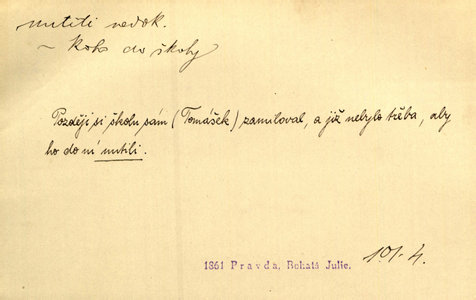 nutiti nedok.
~ koho do školy
Později si školu sám (Tomášek) zamiloval, a již nebylo třeba, aby
ho do ní nutili.
1861 Pravda, Bohatá Julie.
101-4.